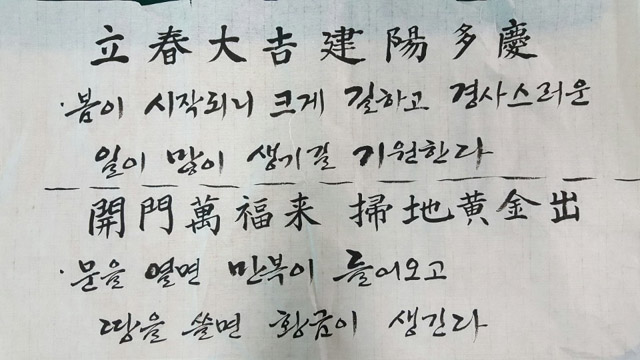 立春大吉建陽多慶
·봄이 시작되니 크게 길하고 경사스러운
일이 많이 생기길 기원한다
開門萬福来 掃地黄金出
·문을 열면 만복이 들어오고
땅을 쓸면 황금이 생긴다